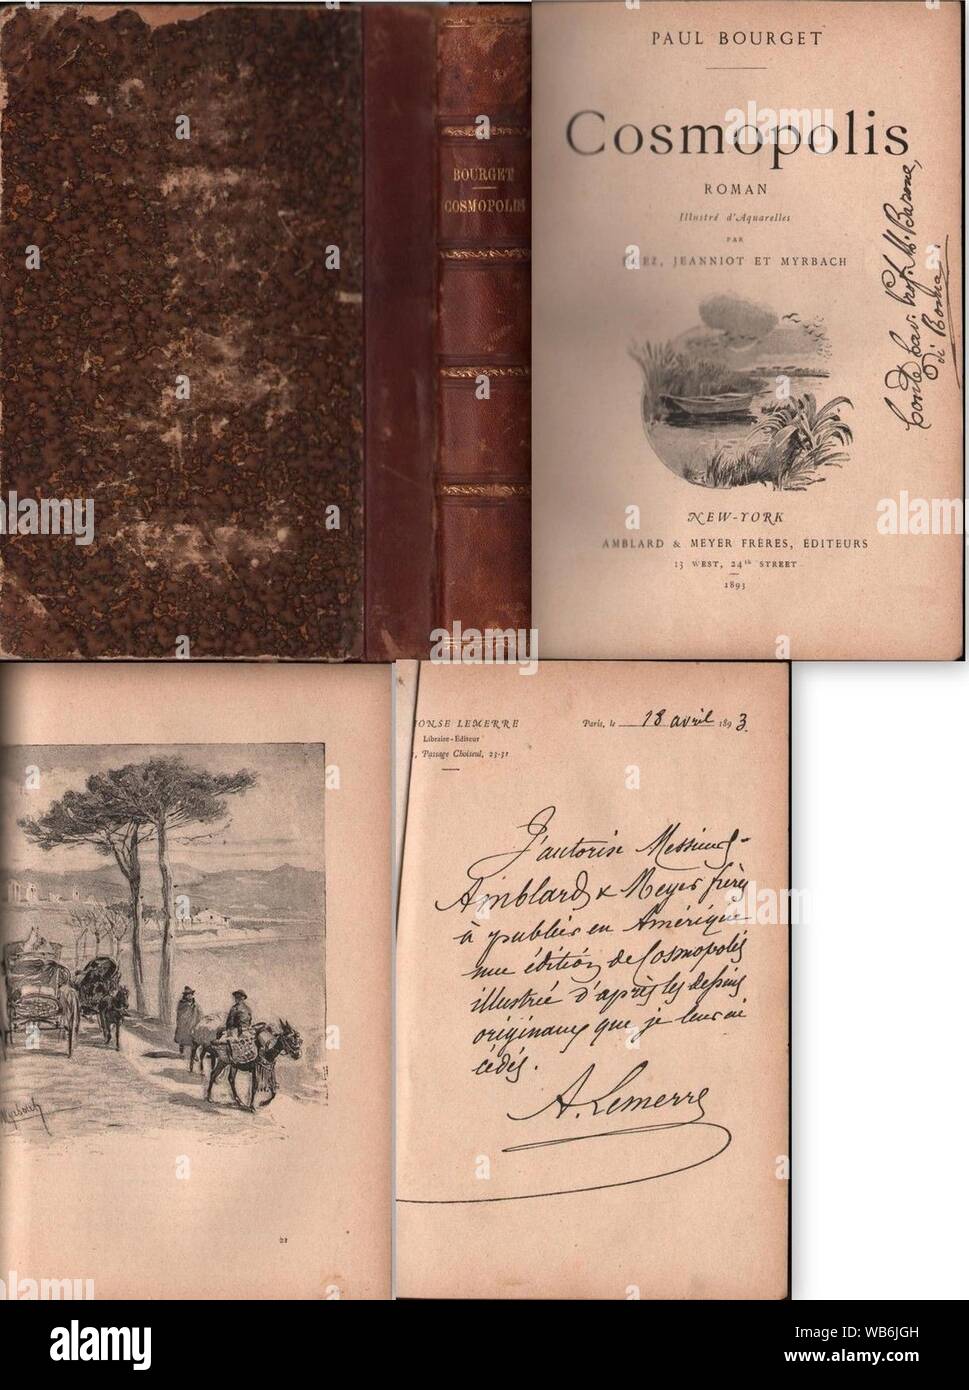 BOURGET
COSMOPOLIS
PAUL BOURGET
Cosmopolis
ROMAN
Illustré d'Aquarelles
PAR
JEANNIOT ET MYRBACH
Conte Cav.
di Roma
NEW-YORK
AMBLARD & MEYER FRÈRES, ÉDITEURS
13 WEST, 24th STREET
1893
Myrbach
21
ONSE LEMERRE
Libraire-Éditeur
, Passage Choiseul, 23-31
Paris, le 18 avril 1893
J'autorise Messieurs
Amblard & Meyer frères
à publier en Amérique
une édition de Cosmopolis
illustrée d'après les dessins
originaux que je leur ai
cédés.
A. Lemerre
alamy
Image ID: WB6JGH
www.alamy.com